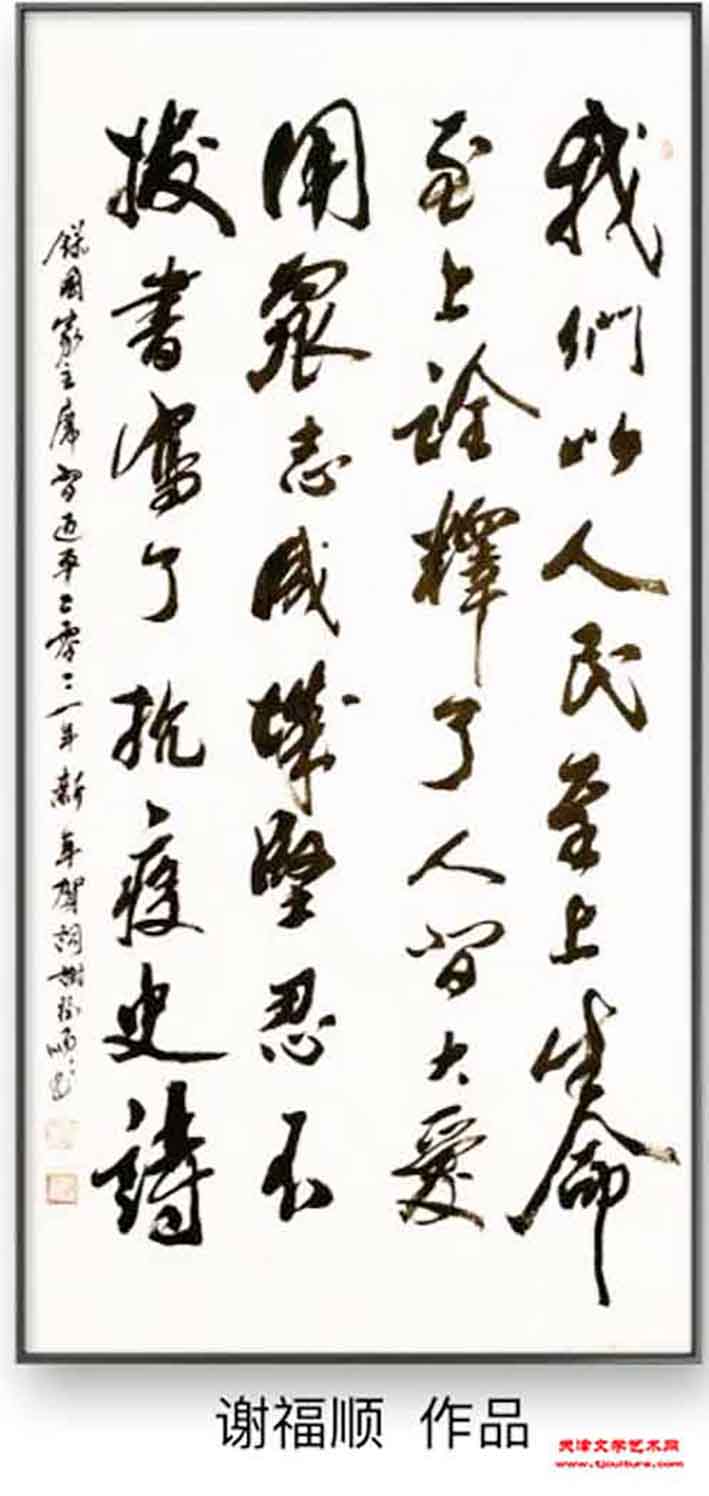 我們以人民至上生命
至上詮釋了人間大愛
用眾志成城堅忍不
拔書寫了抗疫史詩
錄國家主席習近平二零二一年新年賀詞謝福順書
谢福顺 作品
天津文学艺术网
www.tjculture.com